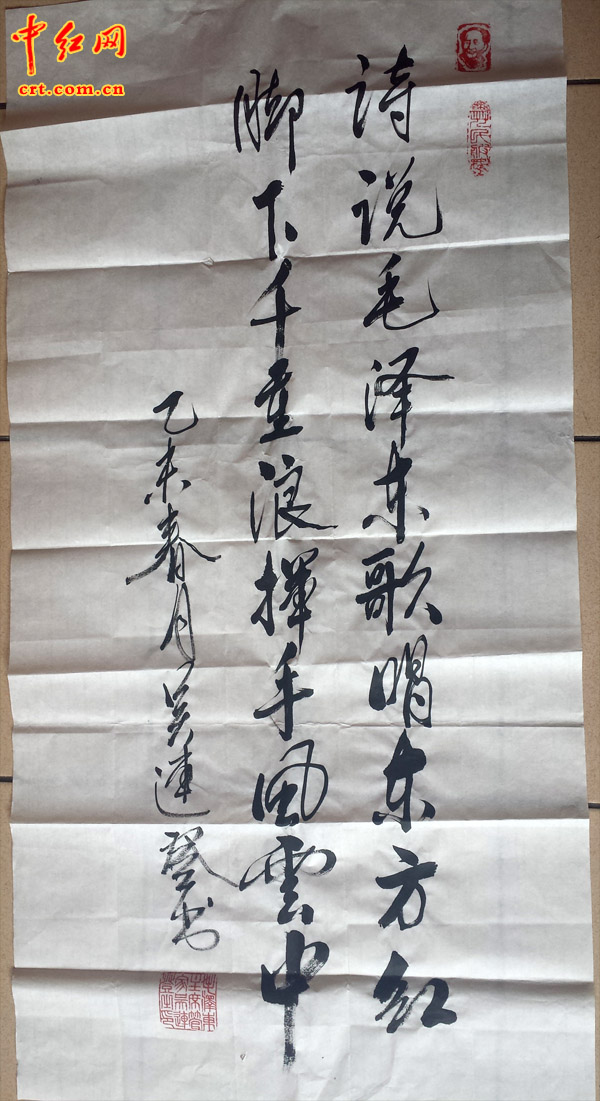 中红网
crt.com.cn
為人民服務
诗说毛泽东歌唱东方红
脚下千重浪揮手风雲中
乙未春月吴连登书